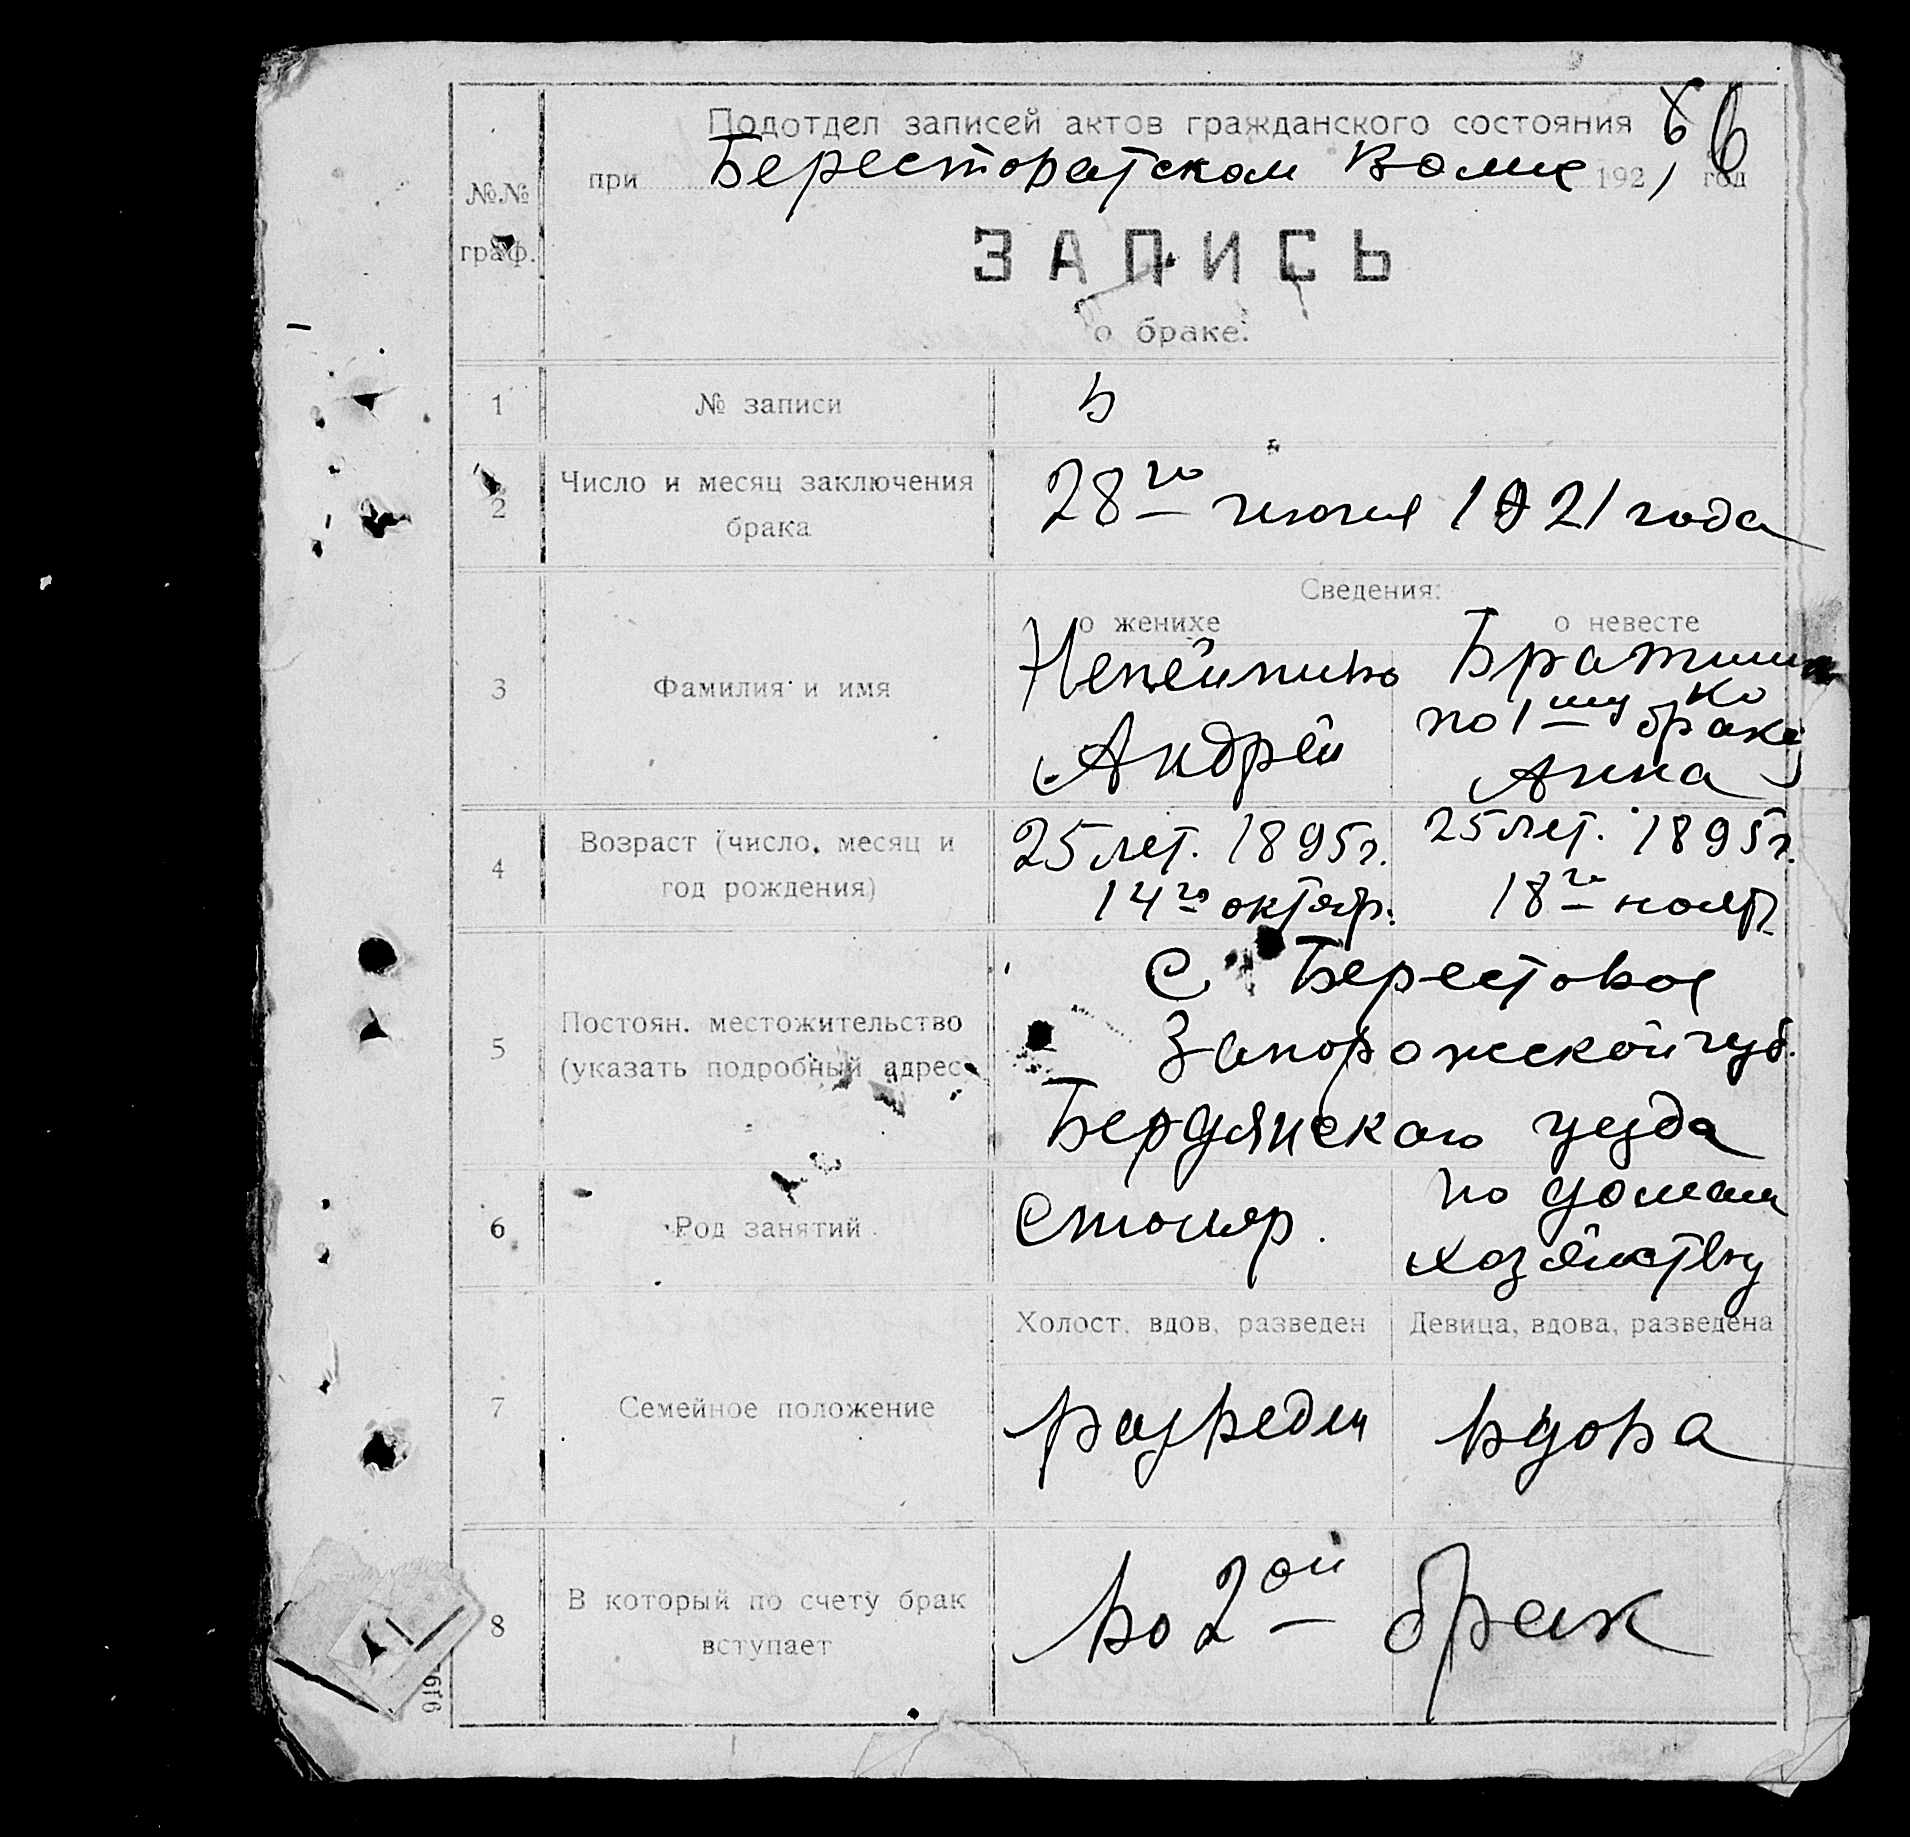 Подотдел записей актов гражданского состояния 6
при Берестоватском Волис 1921 год
№№ граф.
ЗАПИСЬ
о браке.
1 № записи 5
2 Число и месяц заключения брака 28го июня 1921 года
Сведения:
о женихе о невесте
3 Фамилия и имя
Непейпиво Братишко
по 1му браку
Андрей Анна
4 Возраст (число, месяц и год рождения)
25 лет. 1895г. 25 лет. 1895г.
14го октяр. 18го нояр
5 Постоян. местожительство (указать подробный адрес
С Берестовое
Запорожской губ.
Бердянскаго уезда
6 Род занятий
Столяр. по домаш
хозяйству
Холост, вдов, разведен Девица, вдова, разведена
7 Семейное положение
разведен вдова
8 В который по счету брак вступает
во 2ой брак